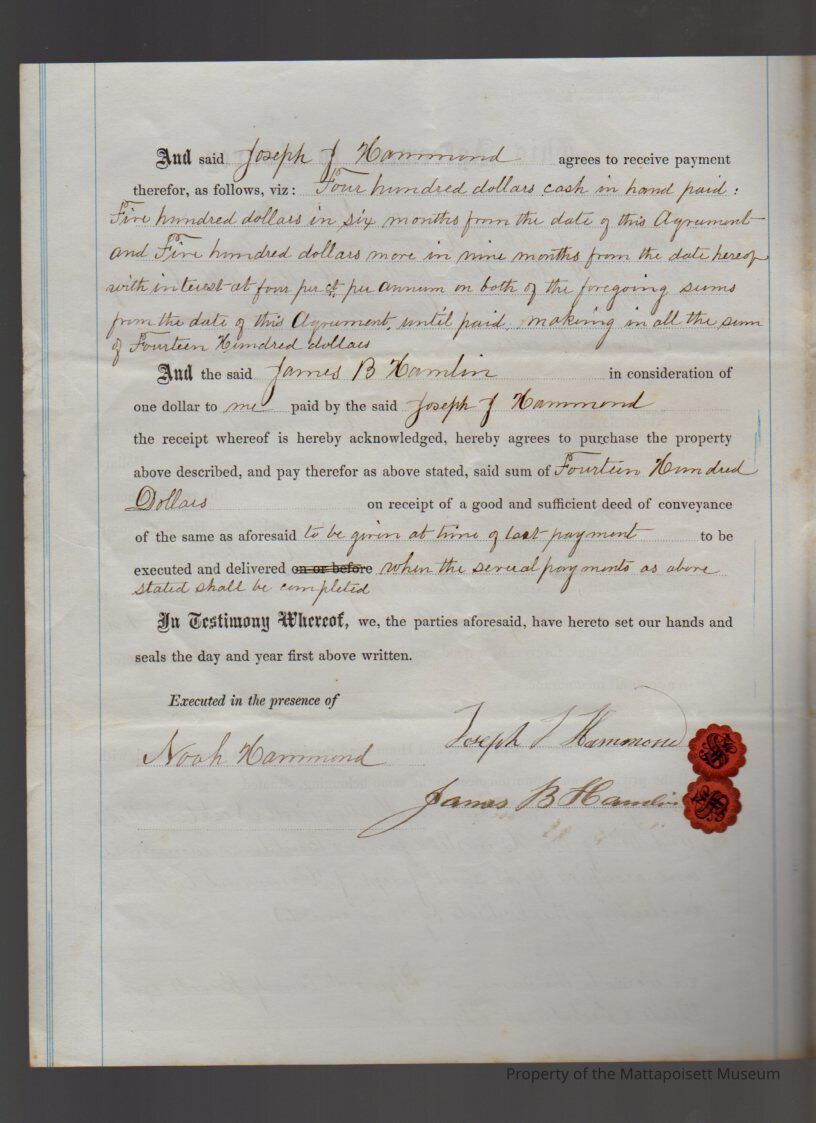 And said Joseph J Hammond agrees to receive payment
therefor, as follows, viz: Four hundred dollars cash in hand paid:
Five hundred dollars in six months from the date of this Agreement
and Five hundred dollars more in nine months from the date hereof
with interest at four per ct. per annum on both of the foregoing sums
from the date of this Agreement, until paid, making in all the sum
of Fourteen Hundred dollars
And the said James B Hamlin in consideration of
one dollar to me paid by the said Joseph J Hammond
the receipt whereof is hereby acknowledged, hereby agrees to purchase the property
above described, and pay therefor as above stated, said sum of Fourteen Hundred
Dollars on receipt of a good and sufficient deed of conveyance
of the same as aforesaid to be given at time of last payment to be
executed and delivered on or before when the several payments as above
stated shall be completed
In Testimony Whereof, we, the parties aforesaid, have hereto set our hands and
seals the day and year first above written.
Executed in the presence of
Joseph J Hammond
Noah Hammond
James B Hamlin
Property of the Mattapoisett Museum